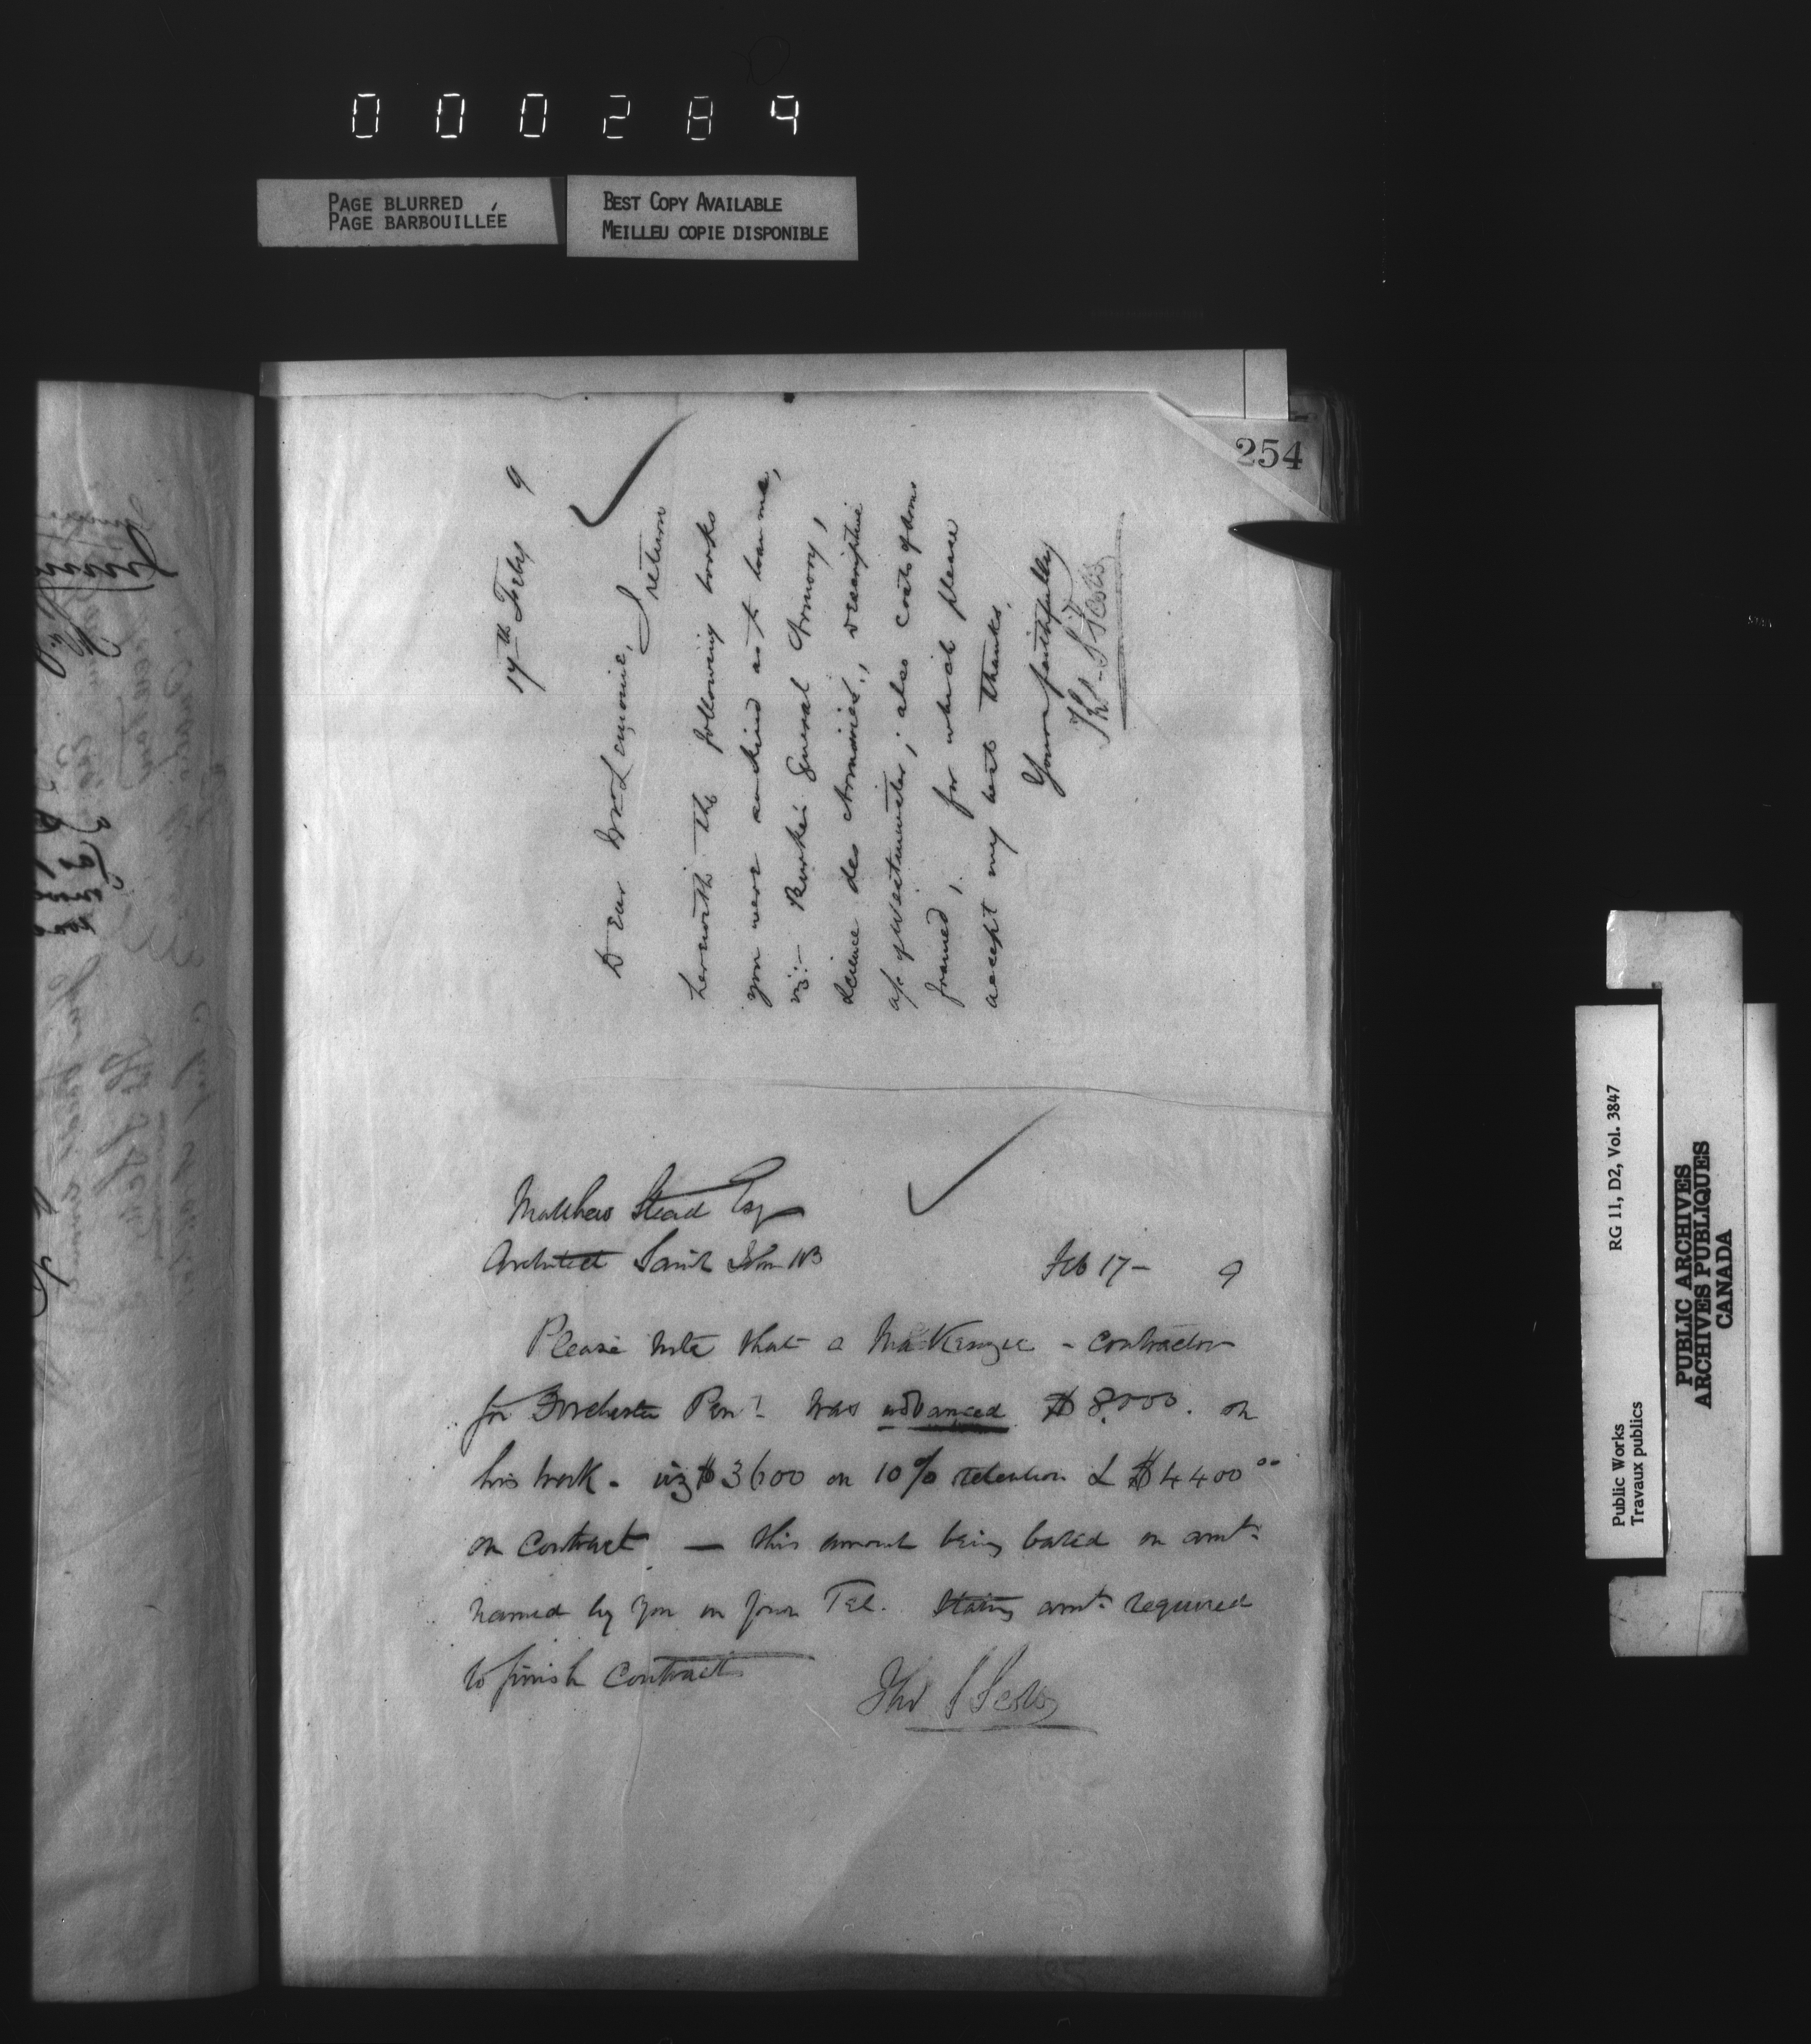 000284
PAGE BLURRED
PAGE BARBOUILLÉE
BEST COPY AVAILABLE
MEILLEU COPIE DISPONIBLE
254
17th Feby 9
Dear Mr Lemoine,
I return
herewith the following books
you were so kind as to loan me,
viz:- Burke's General Armory,
Science des Armoiries, descriptive
of Westminster; also coats of arms
framed, for which please
accept my best thanks.
Yours faithfully
Thos S Scott
Matthew Stead Esq
Architect Saint John NB
Feb 17 - 9
Please note that a MacKenzie - contractor
for Dorchester Pen. was advanced $8,000. on
his work - viz $3600 on 10% retention & $4400.00
on contract — this amount being based on amt.
named by you in your Tel. stating amt. required
to finish contract
Thos S Scott
RG 11, D2, Vol. 3847
Public Works
Travaux publics
PUBLIC ARCHIVES
ARCHIVES PUBLIQUES
CANADA